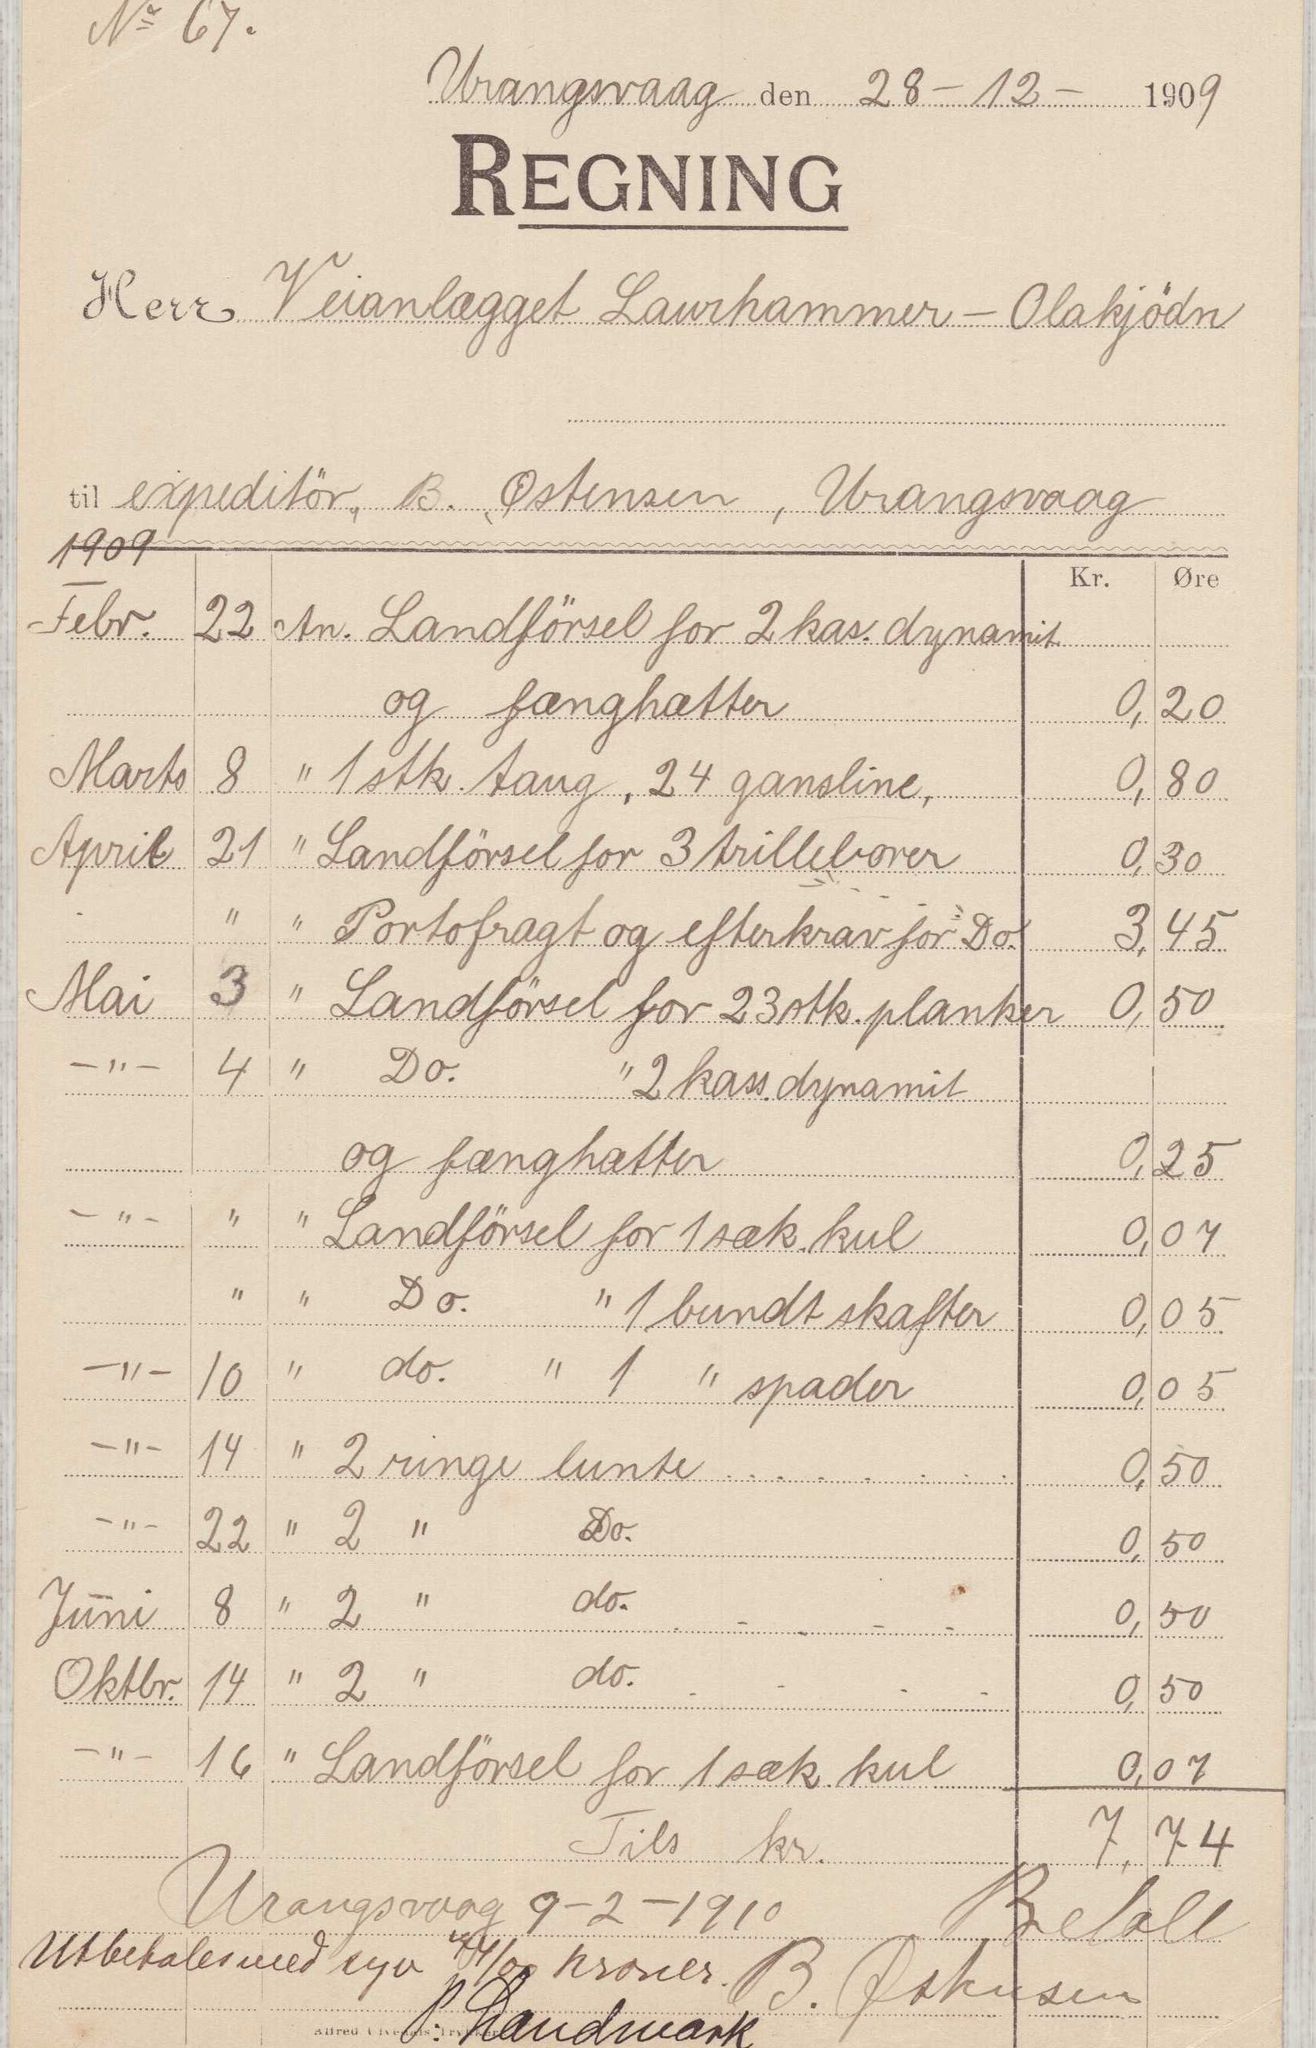 No 67.
Urangsvaag den 28 – 12 – 1909
REGNING
Herr Veianlægget Laurhammer – Olakjödn
til expeditör, B. Østensen, Urangsvaag
1909
Kr. Øre
Febr. 22 An. Landförsel for 2 kas. dynamit
og fænghætter 0, 20
Marts 8 " 1 stk. taug, 24 gansline, 0, 80
April 21 " Landförsel for 3 trillebörer 0, 30
" " Portofragt og efterkrav for Do. 3, 45
Mai 3 " Landförsel for 23 stk. planker 0, 50
–"– 4 " Do. " 2 kass. dynamit
og fænghætter 0, 25
–"– " " Landförsel for 1 sæk. kul 0, 07
" " Do. " 1 bundt skafter 0, 05
–"– 10 " do. " 1 " spader 0, 05
–"– 14 " 2 ringe lunte 0, 50
–"– 22 " 2 " Do. 0, 50
Juni 8 " 2 " do. 0, 50
Oktbr. 14 " 2 " do. 0, 50
–"– 16 " Landförsel for 1 sæk. kul 0, 07
Tils kr. 7, 74
Urangsvaag 9 – 2 – 1910 Betalt
Utbetales med syv 74/00 kroner. B. Østensen
P. Landmark